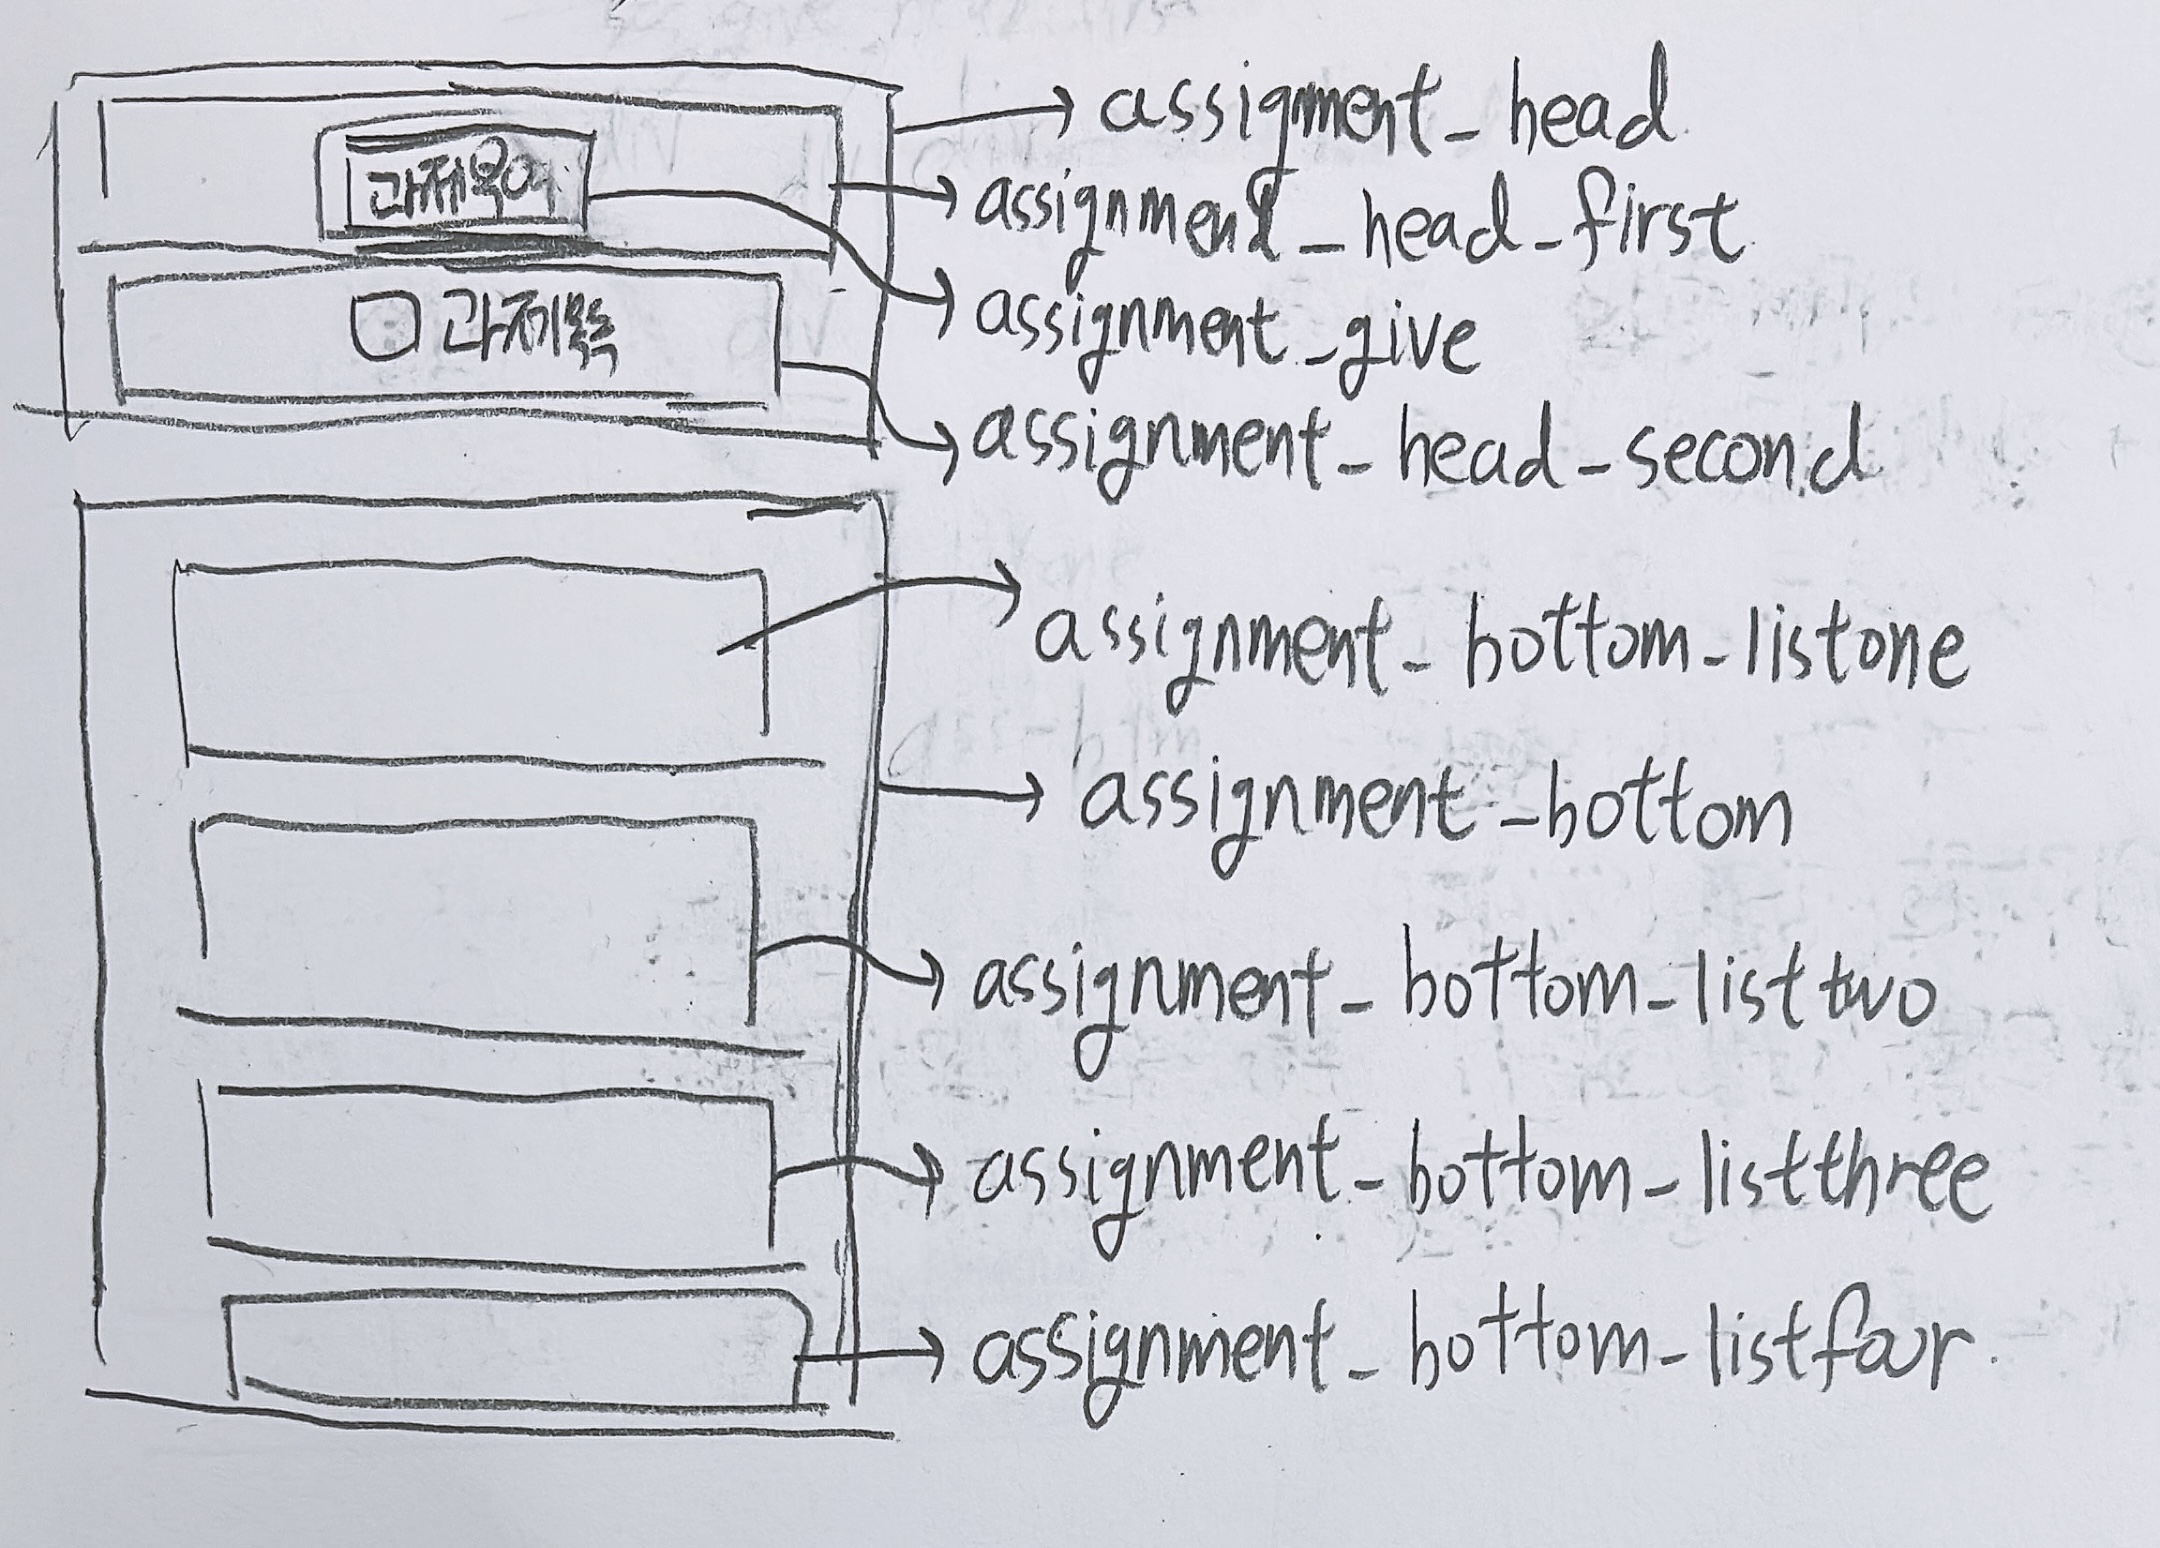 assignment_head
assignment_head_first
과제부여
assignment_give
과제목록
assignment_head_second
assignment_bottom_listone
assignment_bottom
assignment_bottom_listtwo
assignment_bottom_listthree
assignment_bottom_listfour